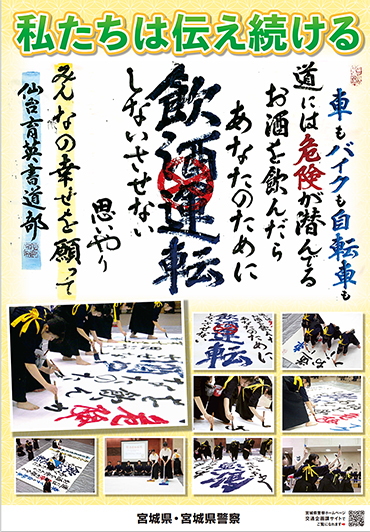 私たちは伝え続ける
車もバイクも自転車も
道には危険が潜んでる
お酒を飲んだら
あなたのために
飲酒運転
しないさせない
思いやり
みんなの幸せを願って
仙台育英書道部
宮城県・宮城県警察
宮城県警察ホームページ
交通企画課サイトで
ご覧になれます